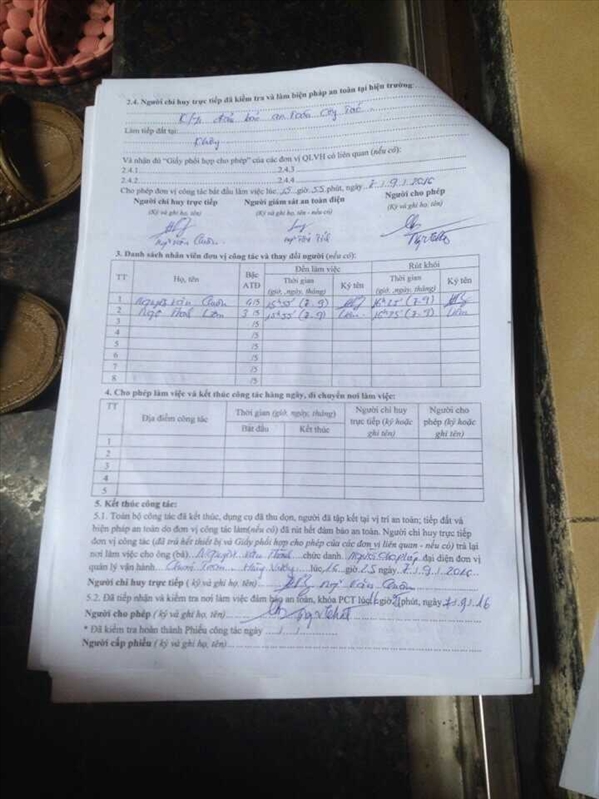 2.4. Người chỉ huy trực tiếp đã kiểm tra và làm biện pháp an toàn tại hiện trường:
K/tra đảm bảo an toàn công tác
Làm tiếp đất tại:
Không
Và nhận đủ "Giấy phối hợp cho phép" của các đơn vị QLVH có liên quan (nếu có):
2.4.1 2.4.3
2.4.2 2.4.4
Cho phép đơn vị công tác bắt đầu làm việc lúc 15 giờ 55 phút, ngày 7/9/2016
Người chỉ huy trực tiếp Người giám sát an toàn điện Người cho phép
(Ký và ghi họ, tên) (Ký và ghi họ, tên - nếu có) (Ký và ghi họ, tên)
3. Danh sách nhân viên đơn vị công tác và thay đổi người (nếu có):
TT Họ, tên Bậc ATĐ Đến làm việc Rút khỏi
Thời gian (giờ, ngày, tháng) Ký tên Thời gian (giờ, ngày, tháng) Ký tên
1 Văn 4/5 15h55' (7-9) (7-9)
2 Ngô 3/5 15h55' (7-9) (7-9)
3 /5
4 /5
5 /5
6 /5
7 /5
8 /5
4. Cho phép làm việc và kết thúc công tác hàng ngày, di chuyển nơi làm việc:
TT Địa điểm công tác Thời gian (giờ, ngày, tháng) Người chỉ huy trực tiếp (ký hoặc ghi tên) Người cho phép (ký hoặc ghi tên)
Bắt đầu Kết thúc
1
2
3
4
5
5. Kết thúc công tác:
5.1. Toàn bộ công tác đã kết thúc, dụng cụ đã thu dọn, người đã tập kết tại vị trí an toàn; tiếp đất và
biện pháp an toàn do đơn vị công tác làm(nếu có) đã rút hết đảm bảo an toàn. Người chỉ huy trực tiếp
đơn vị công tác (đã trả hết thiết bị và Giấy phối hợp cho phép của các đơn vị liên quan - nếu có) trả lại
nơi làm việc cho ông (bà) chức danh Người cho phép đại diện đơn vị
quản lý vận hành lúc 16 giờ 25 ngày 7/9/2016
Người chỉ huy trực tiếp ( ký và ghi họ, tên)
5.2. Đã tiếp nhận và kiểm tra nơi làm việc đảm bảo an toàn, khóa PCT lúc giờ phút, ngày 7/9/16
Người cho phép ( ký và ghi họ, tên)
* Đã kiểm tra hoàn thành Phiếu công tác ngày / /
Người cấp phiếu ( ký và ghi họ, tên)